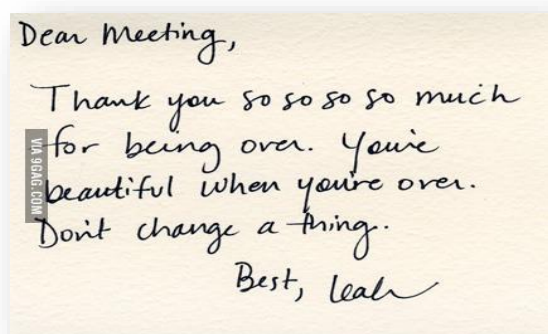 Dear Meeting,
Thank you so so so so much
for being over. You're
beautiful when you're over.
Don't change a thing.
Best, Leah
VIA 9GAG.COM